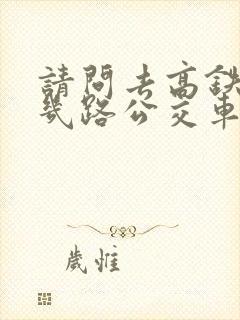 請問去高鉄
幾路公交車
歲惟